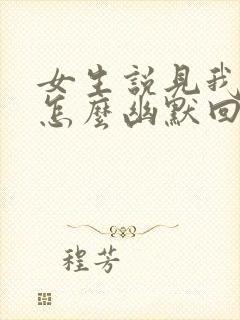 女生說見我
怎麼幽默回
程芳